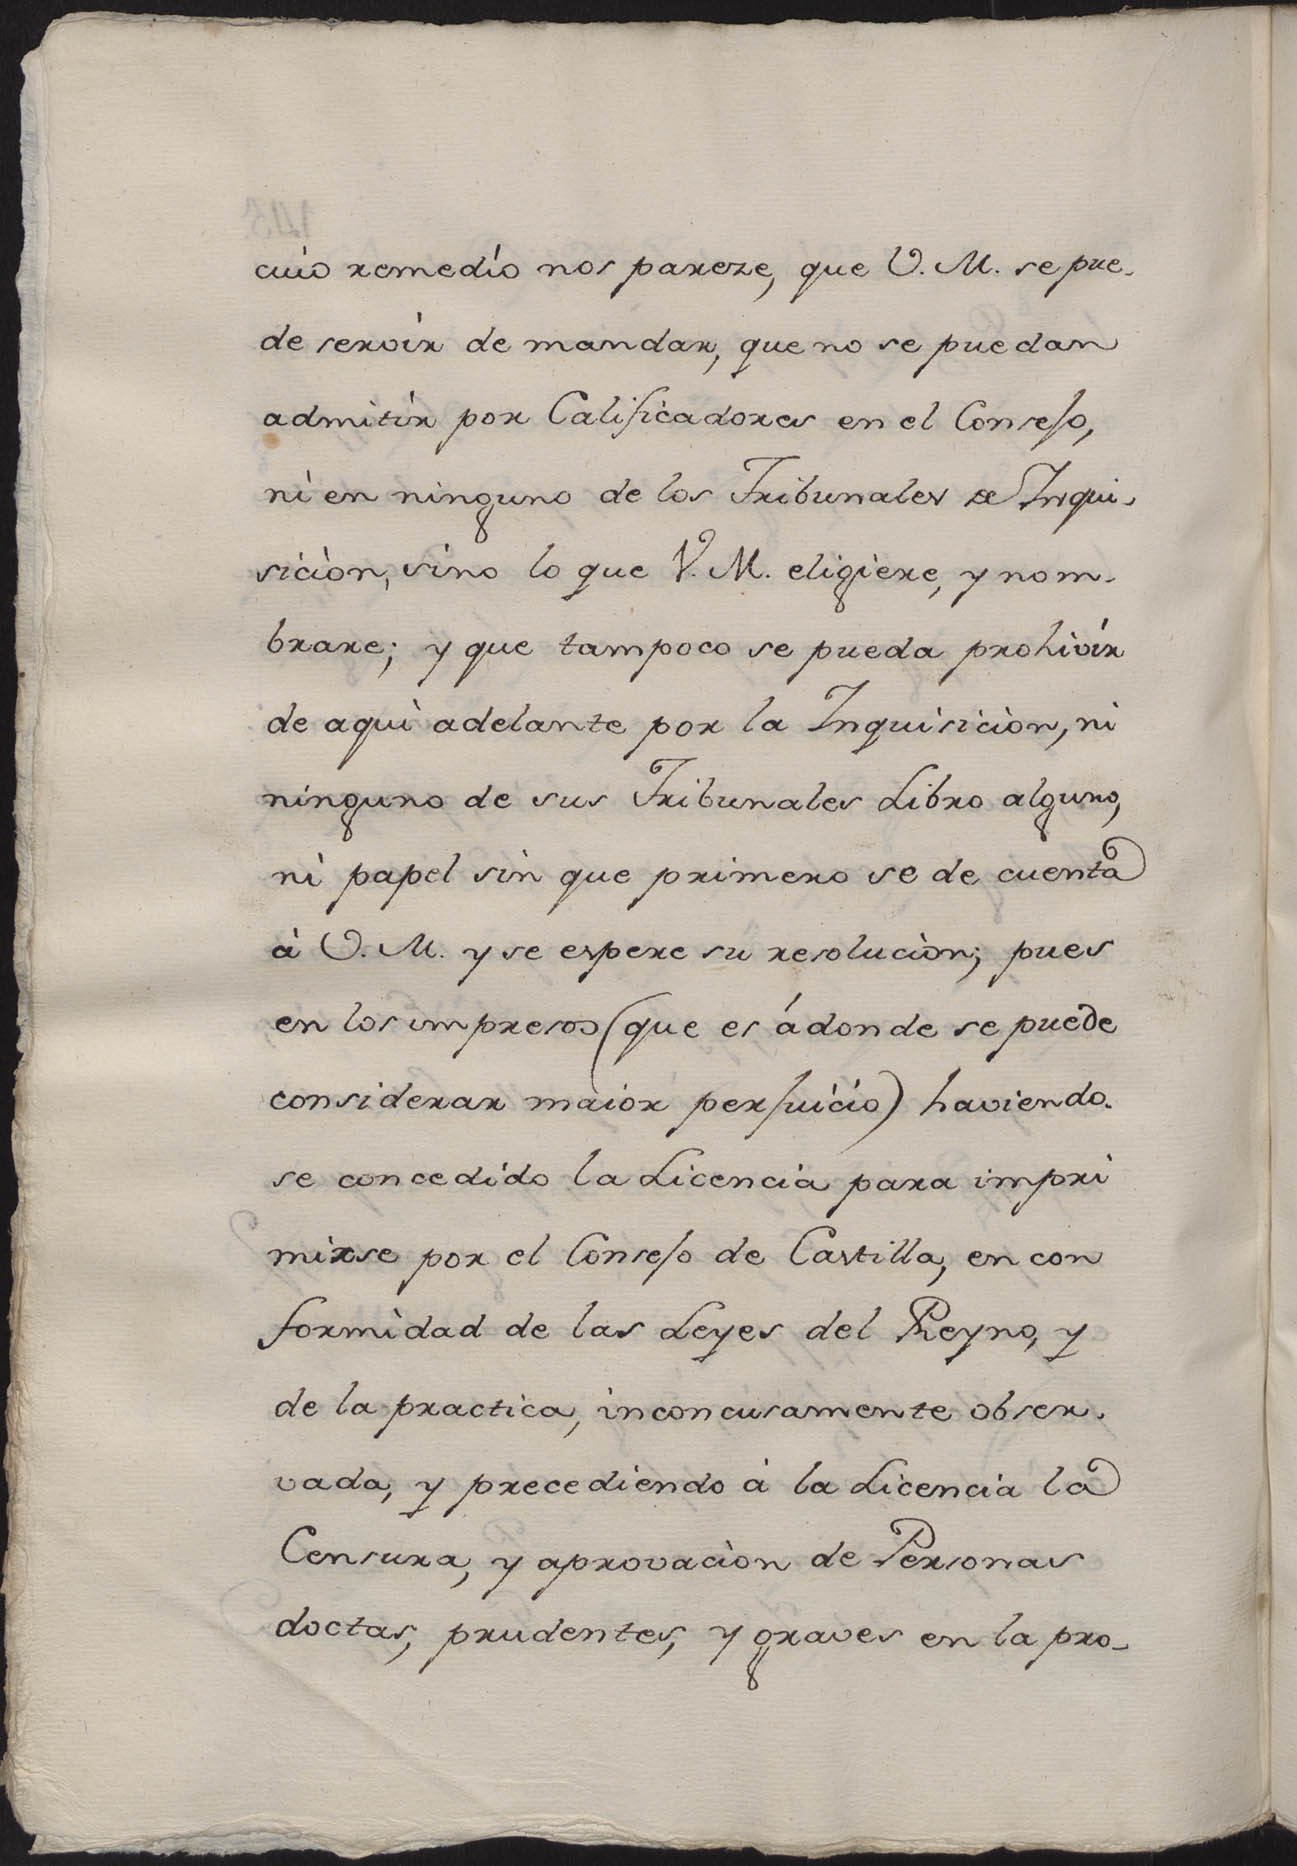 cuio remedio nos pareze, que V. M. se pue-
de servir de mandar, que no se puedan
admitir por Calificadores en el Consejo,
ni en ninguno de los Tribunales de Inqui-
sicion, sino lo que V. M. eligiere, y nom-
brare; y que tampoco se pueda prohivir
de aqui adelante por la Inquisicion, ni
ninguno de sus Tribunales Libro alguno,
ni papel sin que primero se de cuenta
à V. M. y se espere su resolucion; pues
en los impresos (que es ádonde se puede
considerar maior perjuicio) haviendo-
se concedido la Licencia para impri
mirse por el Consejo de Castilla, en con
formidad de las Leyes del Reyno, y
de la practica, inconcusamente obser-
vada, y precediendo à la Licencia la
Censura, y aprovacion de Personas
doctas, prudentes, y graves en la pro-